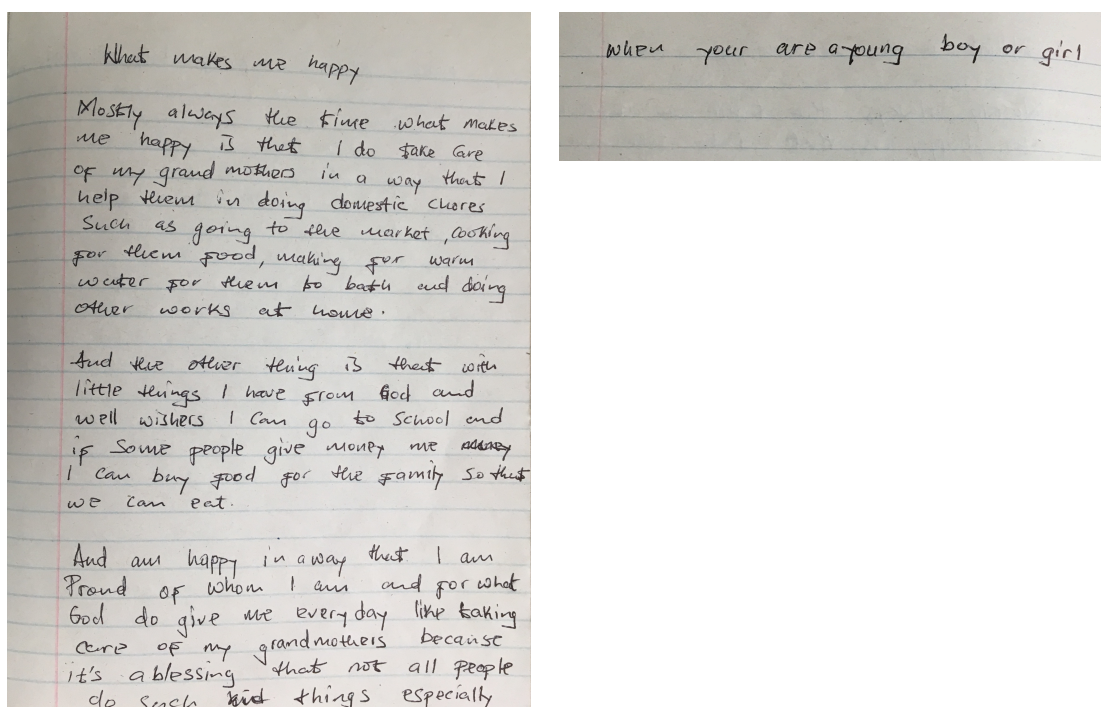 What makes me happy
Mostly always the time what makes
me happy is that I do take care
of my grand mothers in a way that I
help them in doing domestic chores
Such as going to the market, cooking
for them food, making for warm
water for them to bath and doing
other works at home.
And the other thing is that with
little things I have from God and
well wishers I can go to School and
if Some people give money me
I can buy food for the family so that
we can eat.
And am happy in away that I am
Proud of whom I am and for what
God do give me everyday like taking
care of my grandmothers because
it's a blessing that not all people
do such things especially
when your are a young boy or girl